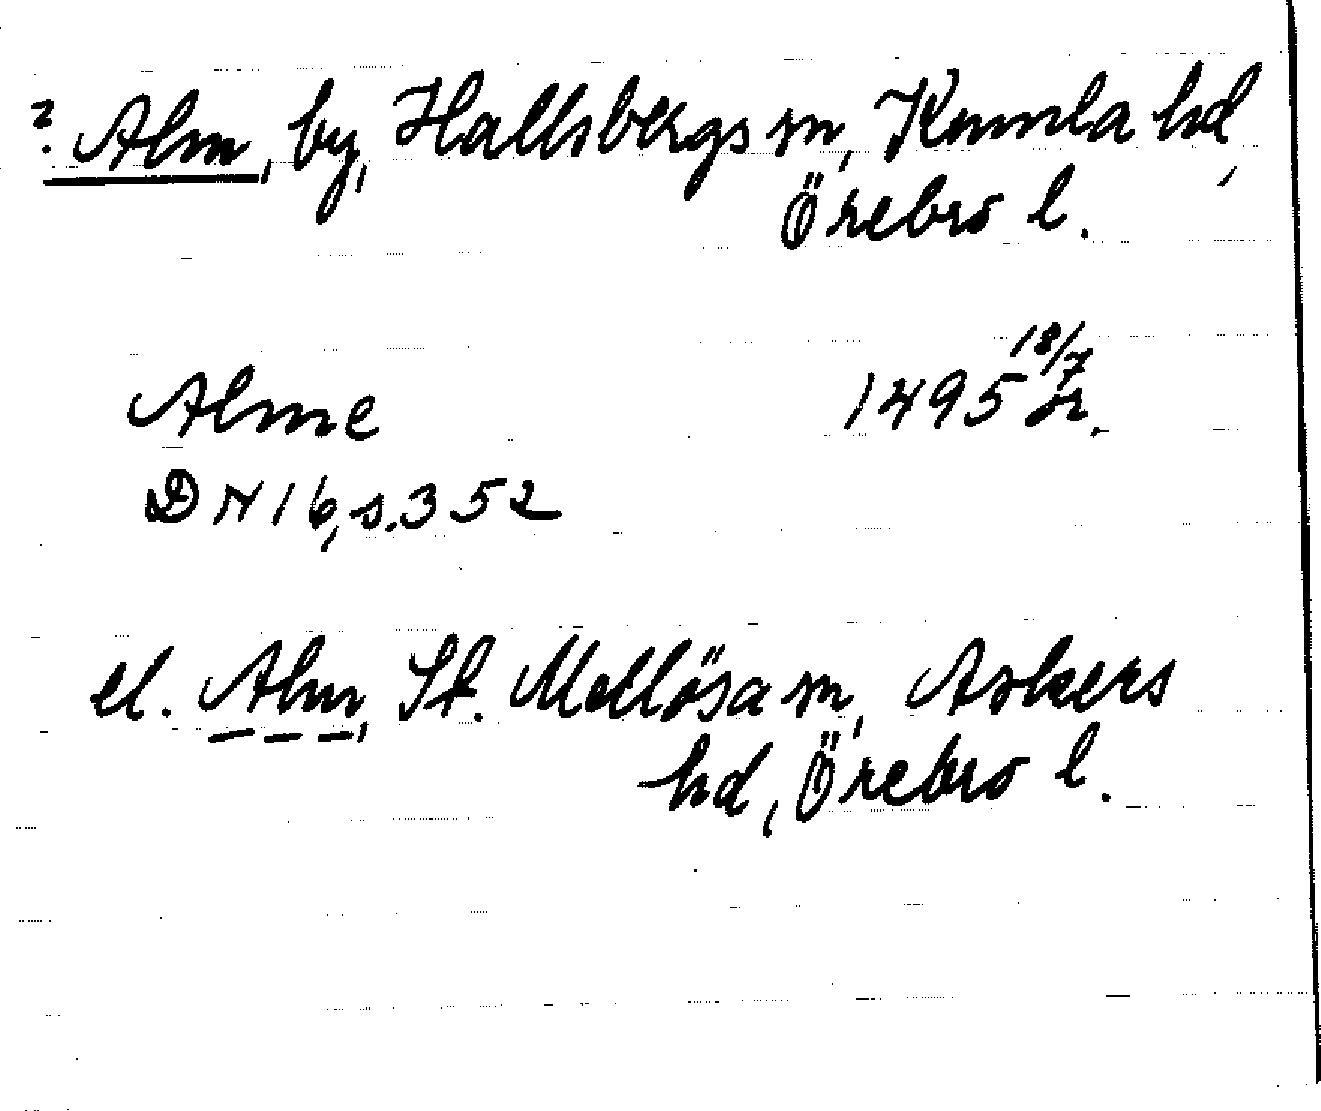 ? Alm, by, Hallsbergs sn, Kumla hd,
Örebro l.
Alme 1495 18/7 or.
DN 16, s. 352
el. Alm, St. Mellösa sn, Askers
hd, Örebro l.